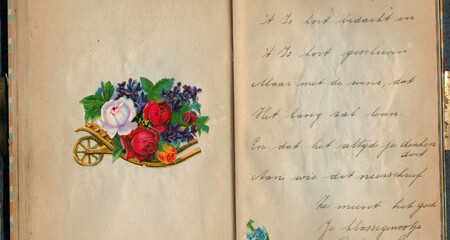 't Is kort bedacht en
't Is kort geschreven
Maar met de wens, dat
Het lang zal leven
En dat het altijd je denken
doet
Aan wie dit neerschreef
Ze meent het goed
Je klassegenootje